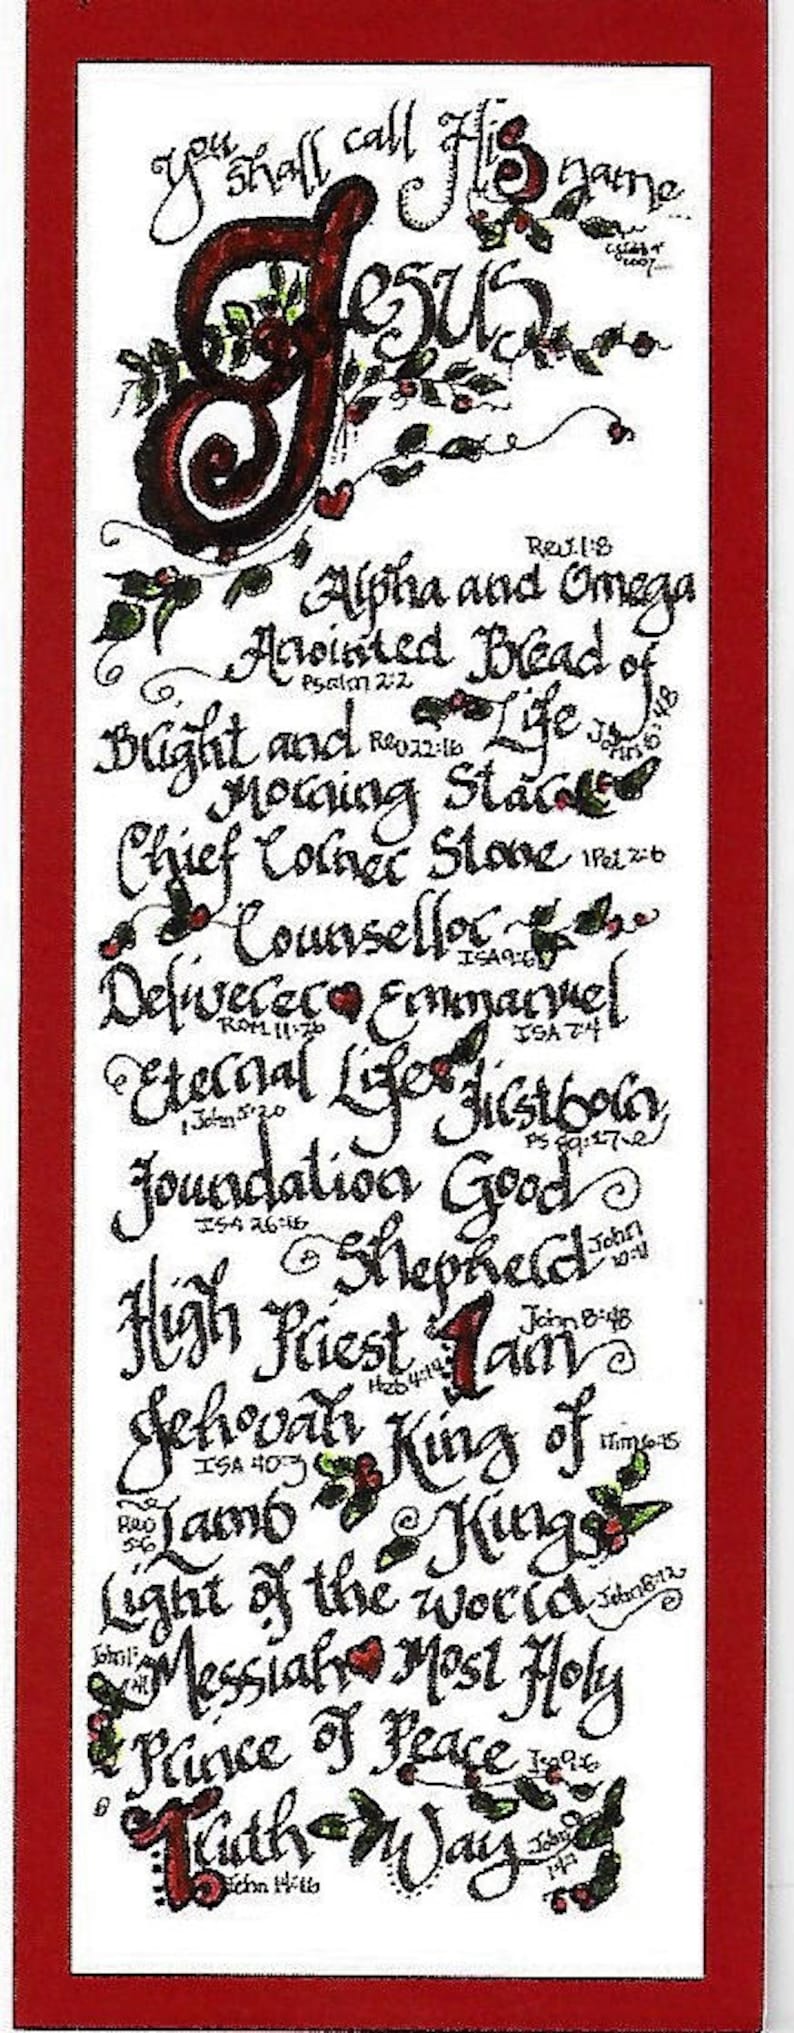 You shall call His name...
Jesus
Rev. 1:8
Alpha and Omega
Anointed Bread of
Psalm 2:2
Life John 6:48
Bright and Rev 22:16
Morning Star
Chief Corner Stone 1 Pet 2:6
Counsellor
ISA 9:6
Deliverer Emmanuel
Rom 11:26 ISA 7:4
Eternal Life Firstborn
1 John 5:20
Foundation Good
ISA 26:16
Shepherd John 10:11
High Priest I am John 8:48
Heb 4:14
Jehovah King of 1 Tim 6:15
ISA 40:3
Rev 5:6 Lamb Kings
Light of the World John 8:12
John 1:41 Messiah Most Holy
Prince of Peace Isa 9:6
Truth Way John
John 14:16